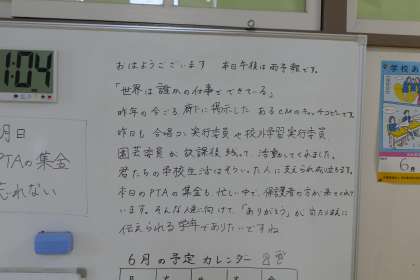 1:04
月日
PTAの集金
忘れない
おはようございます 本日午後は雨予報です。
「世界は誰かの仕事でできている」
昨年の今ごろ 掲示した あるCMのキャッチコピーです。
昨日も 合唱コン実行委員や校外学習実行委員
図芸委員が 放課後残って 活動してくれました。
君たちの学校生活はそういった人に支えられ成り立ちます。
本日のPTAの集金も、忙しい中で、保護者の方が来てくれて
います。そんな人達に向けて「ありがとう」が 当たり前に
伝えられる学年でありたいですね
6月の予定カレンダー
学校あ
6月